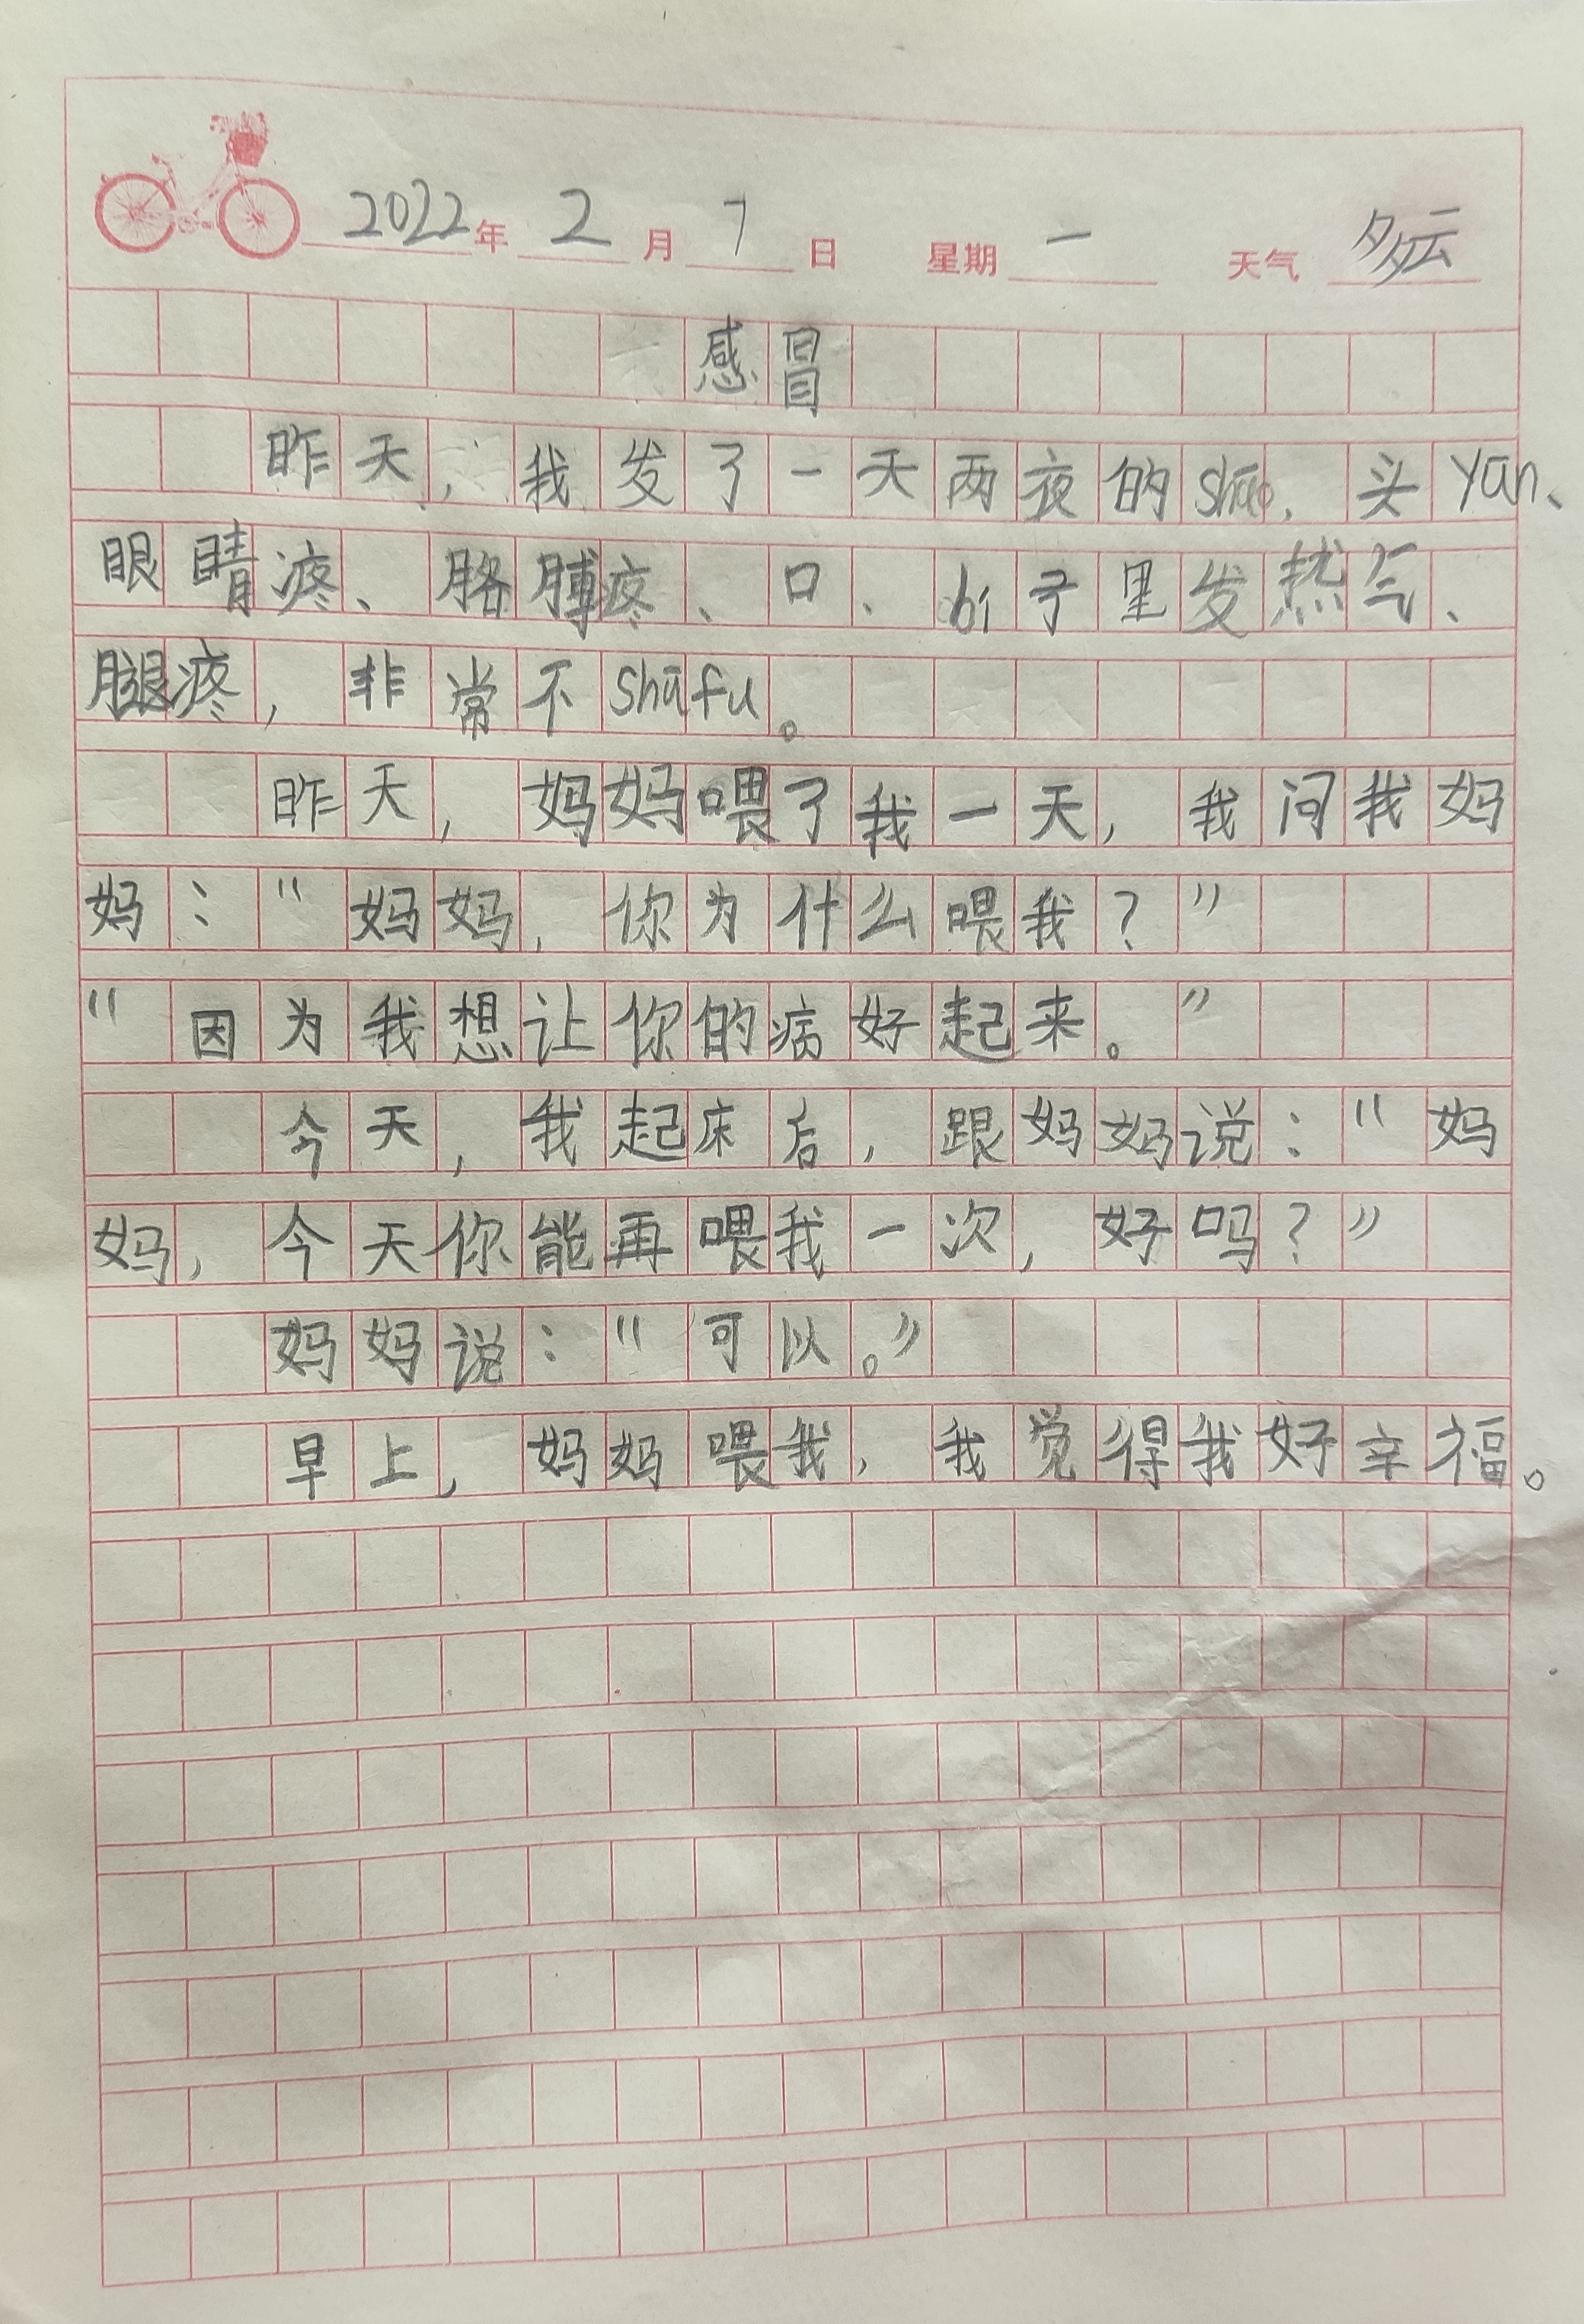 2022年 2月 7日 星期 一 天气 多云
感冒
昨天，我发了一天两夜的shāo，头yūn、
眼睛疼、胳膊疼、口、bí子里发热气、
腿疼，非常不shūfu。
昨天，妈妈喂了我一天，我问我妈
妈：“妈妈，你为什么喂我？”
“因为我想让你的病好起来。”
今天，我起床后，跟妈妈说：“妈
妈，今天你能再喂我一次，好吗？”
妈妈说：“可以。”
早上，妈妈喂我，我觉得我好辛福。